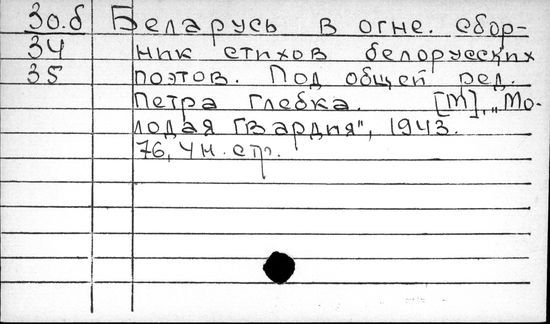 30.б Беларусь в огне. сбор-
34 ник стихов белорусских
35 поэтов. Под общей ред.
Петра Глебка. [М], „Мо-
лодая Гвардия", 1943.
76, 4 н. стр.